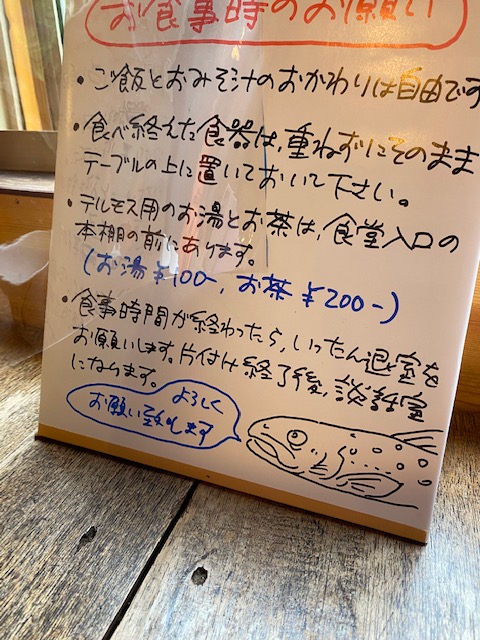 お食事時のお願い
・ご飯とおみそ汁のおかわりは自由です
・食べ終えた食器は,重ねずにそのまま
テーブルの上に置いておいて下さい。
・テルモス用のお湯とお茶は,食堂入口の
本棚の前にあります。
(お湯¥100-, お茶¥200-)
・食事時間が終わったら,いったん退室を
お願いします。片付け終了後,談話室
になります。
よろしく
お願い致します